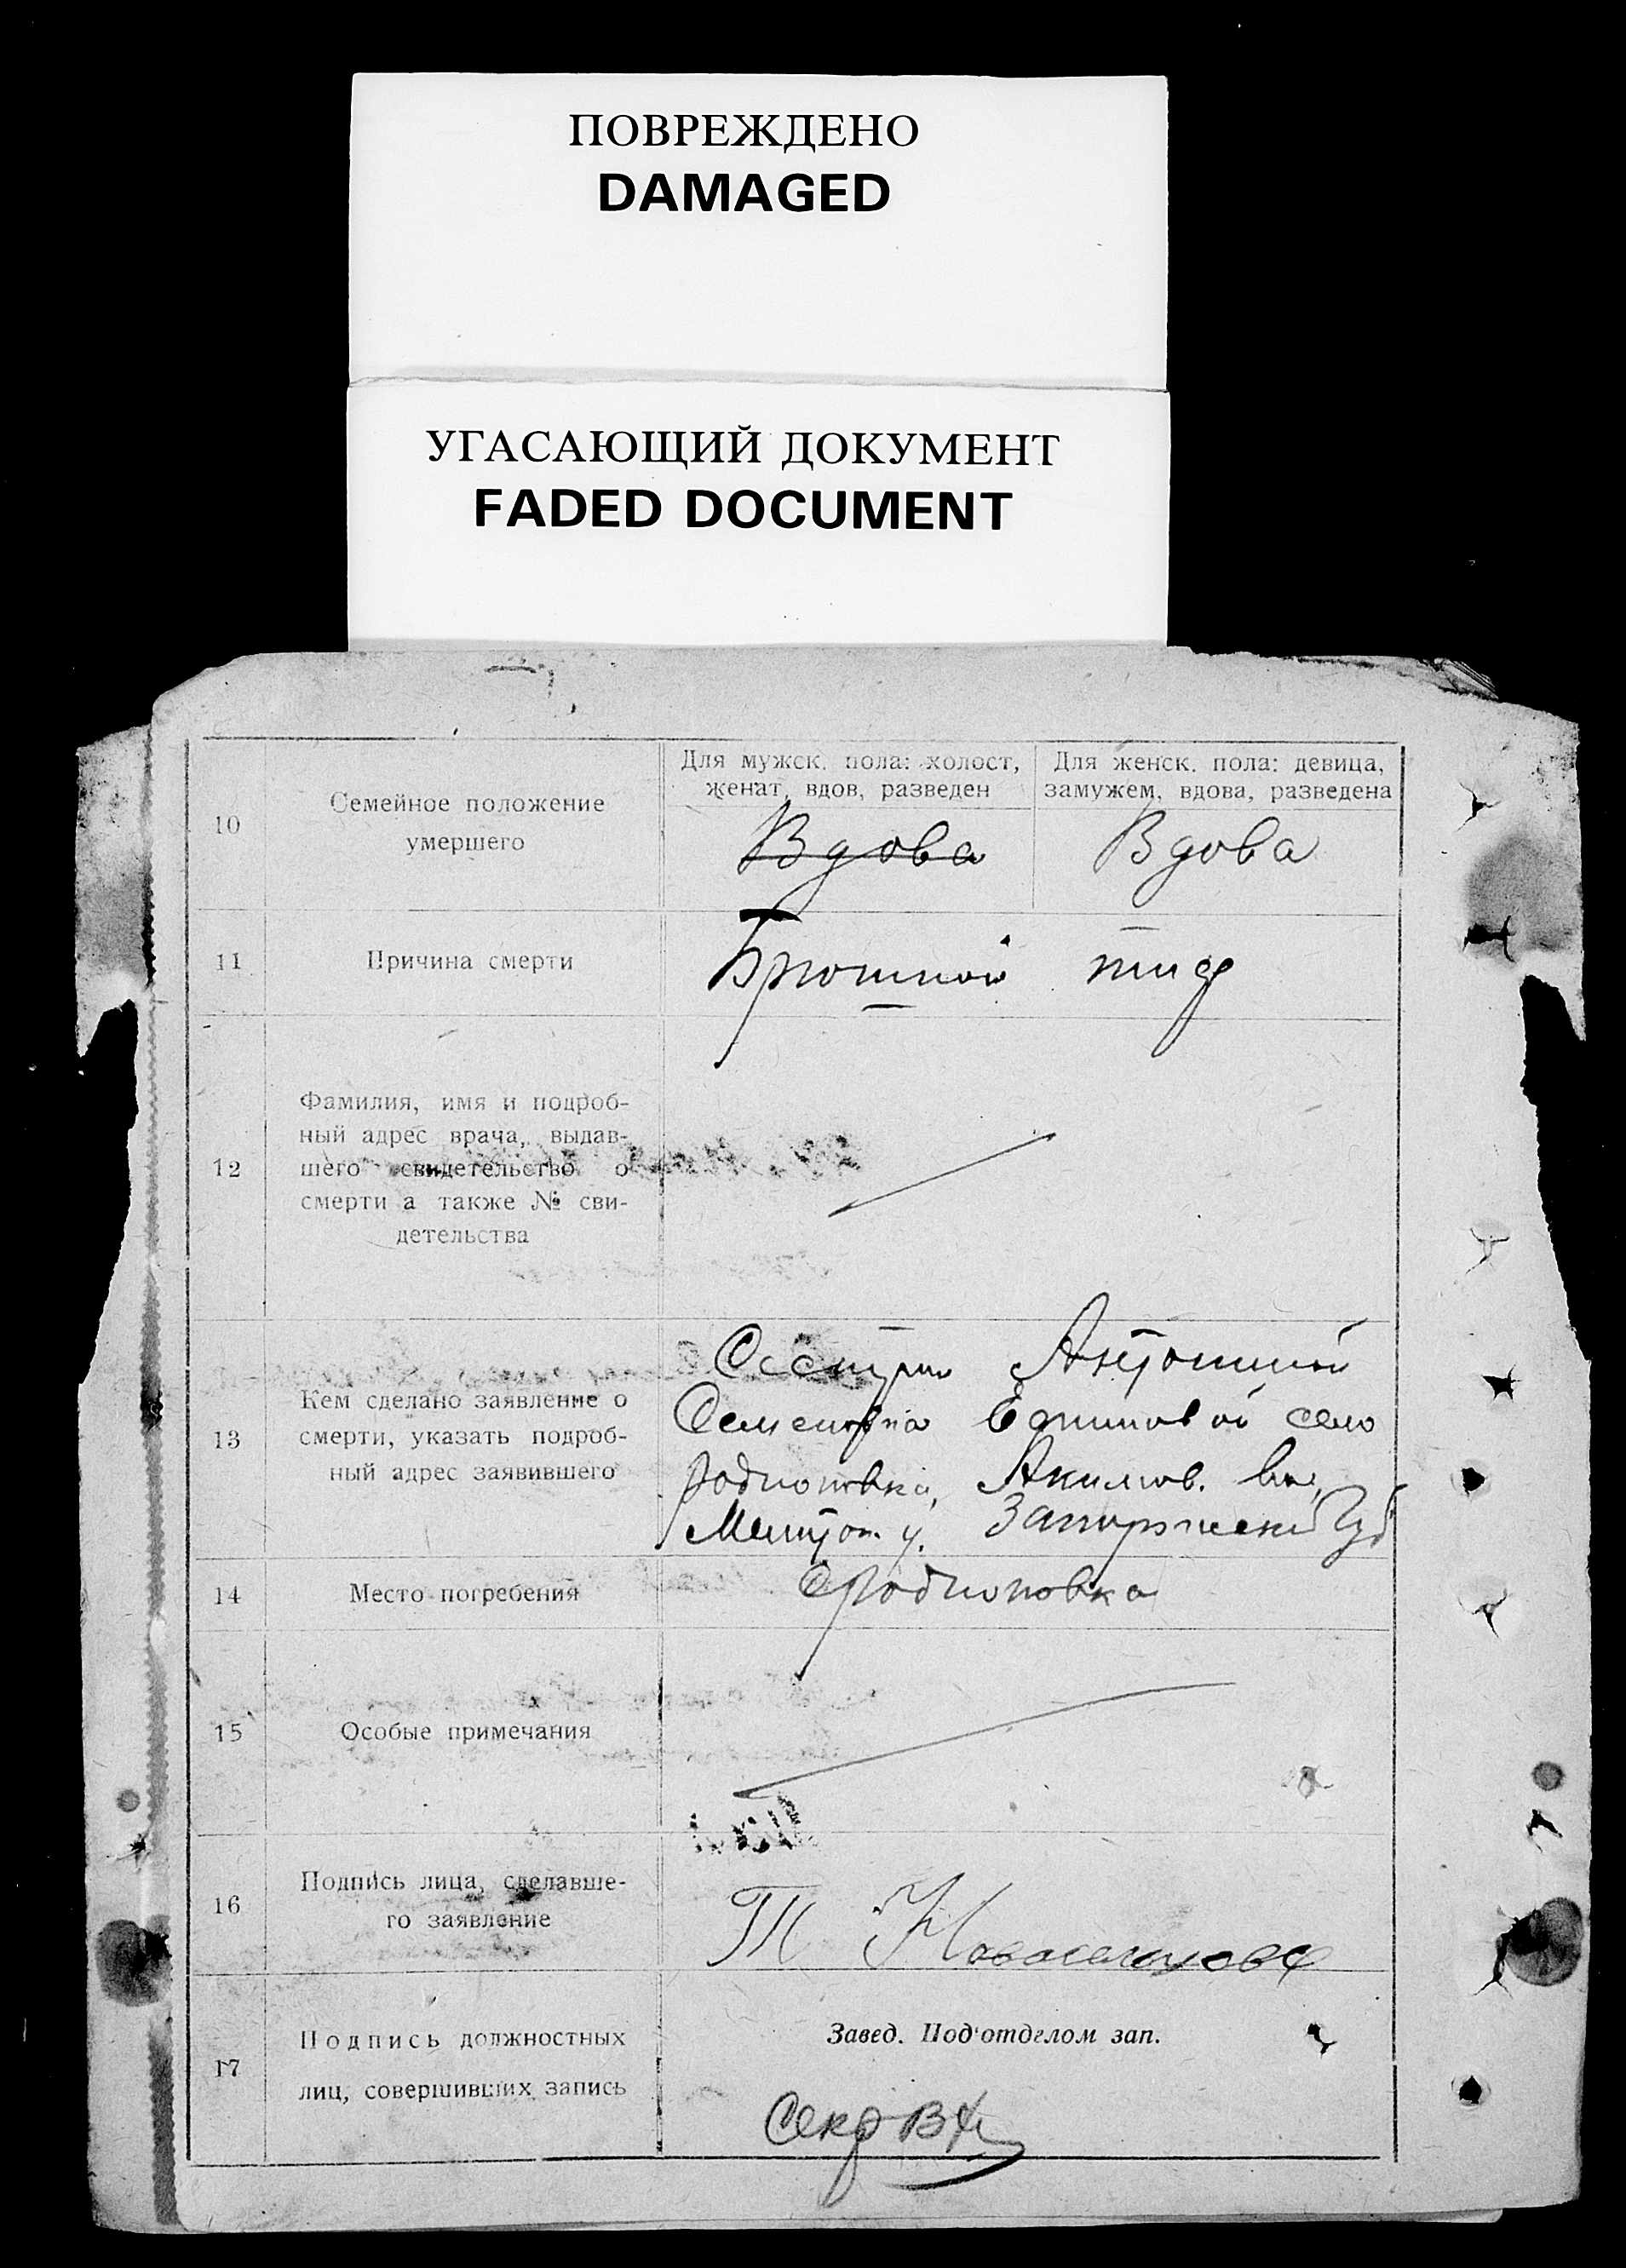 ПОВРЕЖДЕНО
DAMAGED
УГАСАЮЩИЙ ДОКУМЕНТ
FADED DOCUMENT
10
Семейное положение
умершего
Для мужск. пола: холост,
женат, вдов, разведен
Вдова
Для женск. пола: девица,
замужем, вдова, разведена
Вдова
11
Причина смерти
Брюшной тиф
12
Фамилия, имя и подроб-
ный адрес врача, выдав-
шего свидетельство о
смерти а также № сви-
детельства
13
Кем сделано заявление о
смерти, указать подроб-
ный адрес заявившего
Сестрин
Ефимовой село
Родионовка, Акимов. вол,
Мелитоп. у. Губ
14
Место погребения
С Родионовка
15
Особые примечания
16
Подпись лица, сделавше-
го заявление
Т
17
Подпись должностных
лиц, совершивших запись
Завед. Под'отделом зап.
Секр